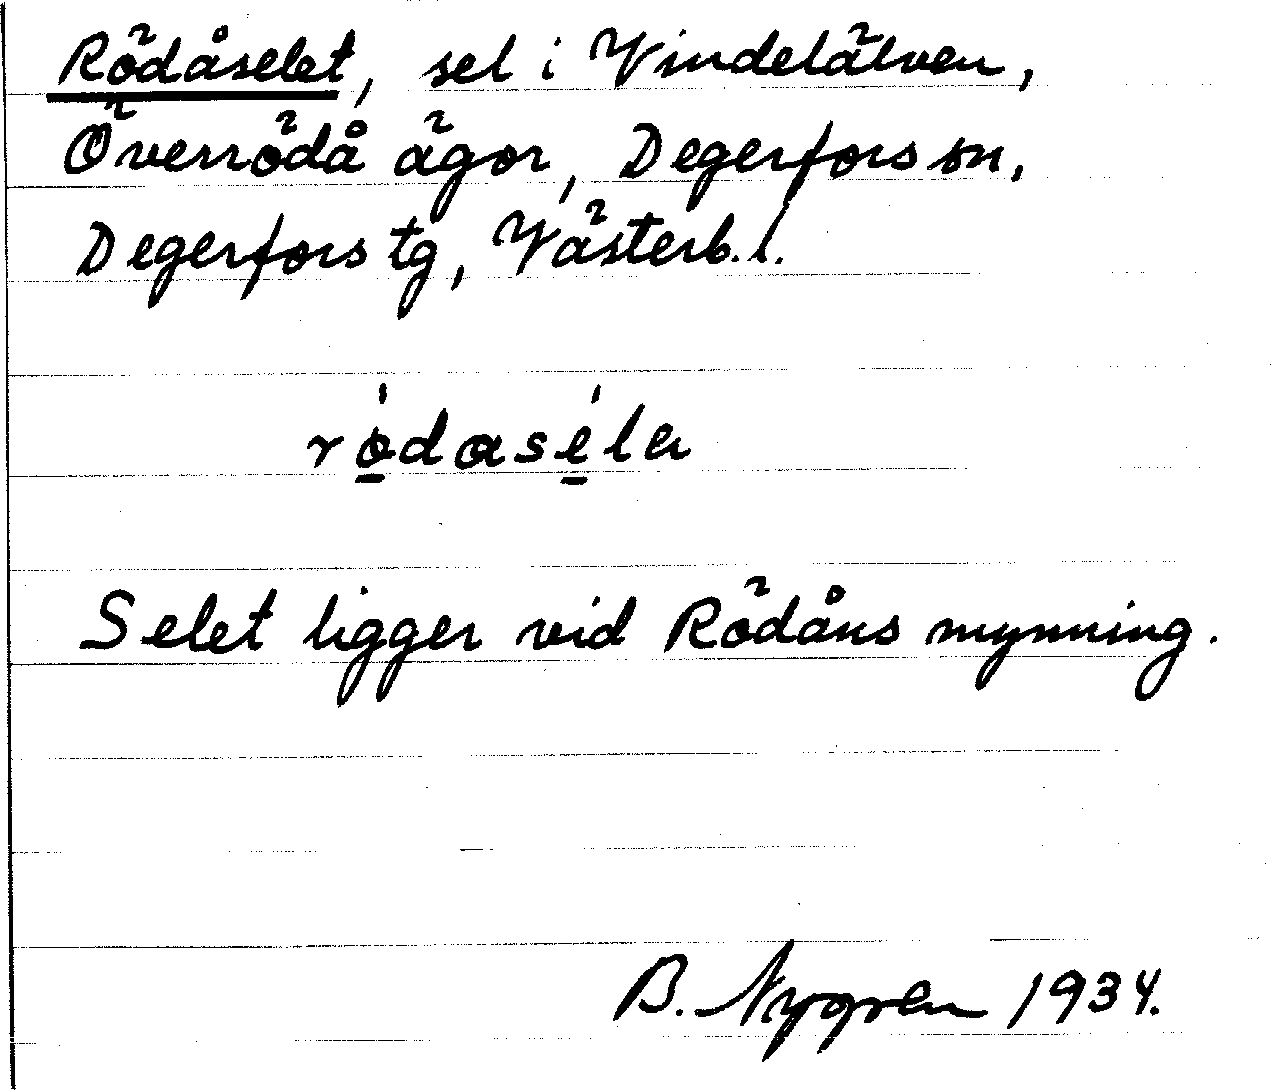 Rödåselet, sel i Vindelälven,
Överrödå ägor, Degerfors sn,
Degerfors tg, Västerb. l.
rödasela
Selet ligger vid Rödåns mynning.
B. Nygren 1934.